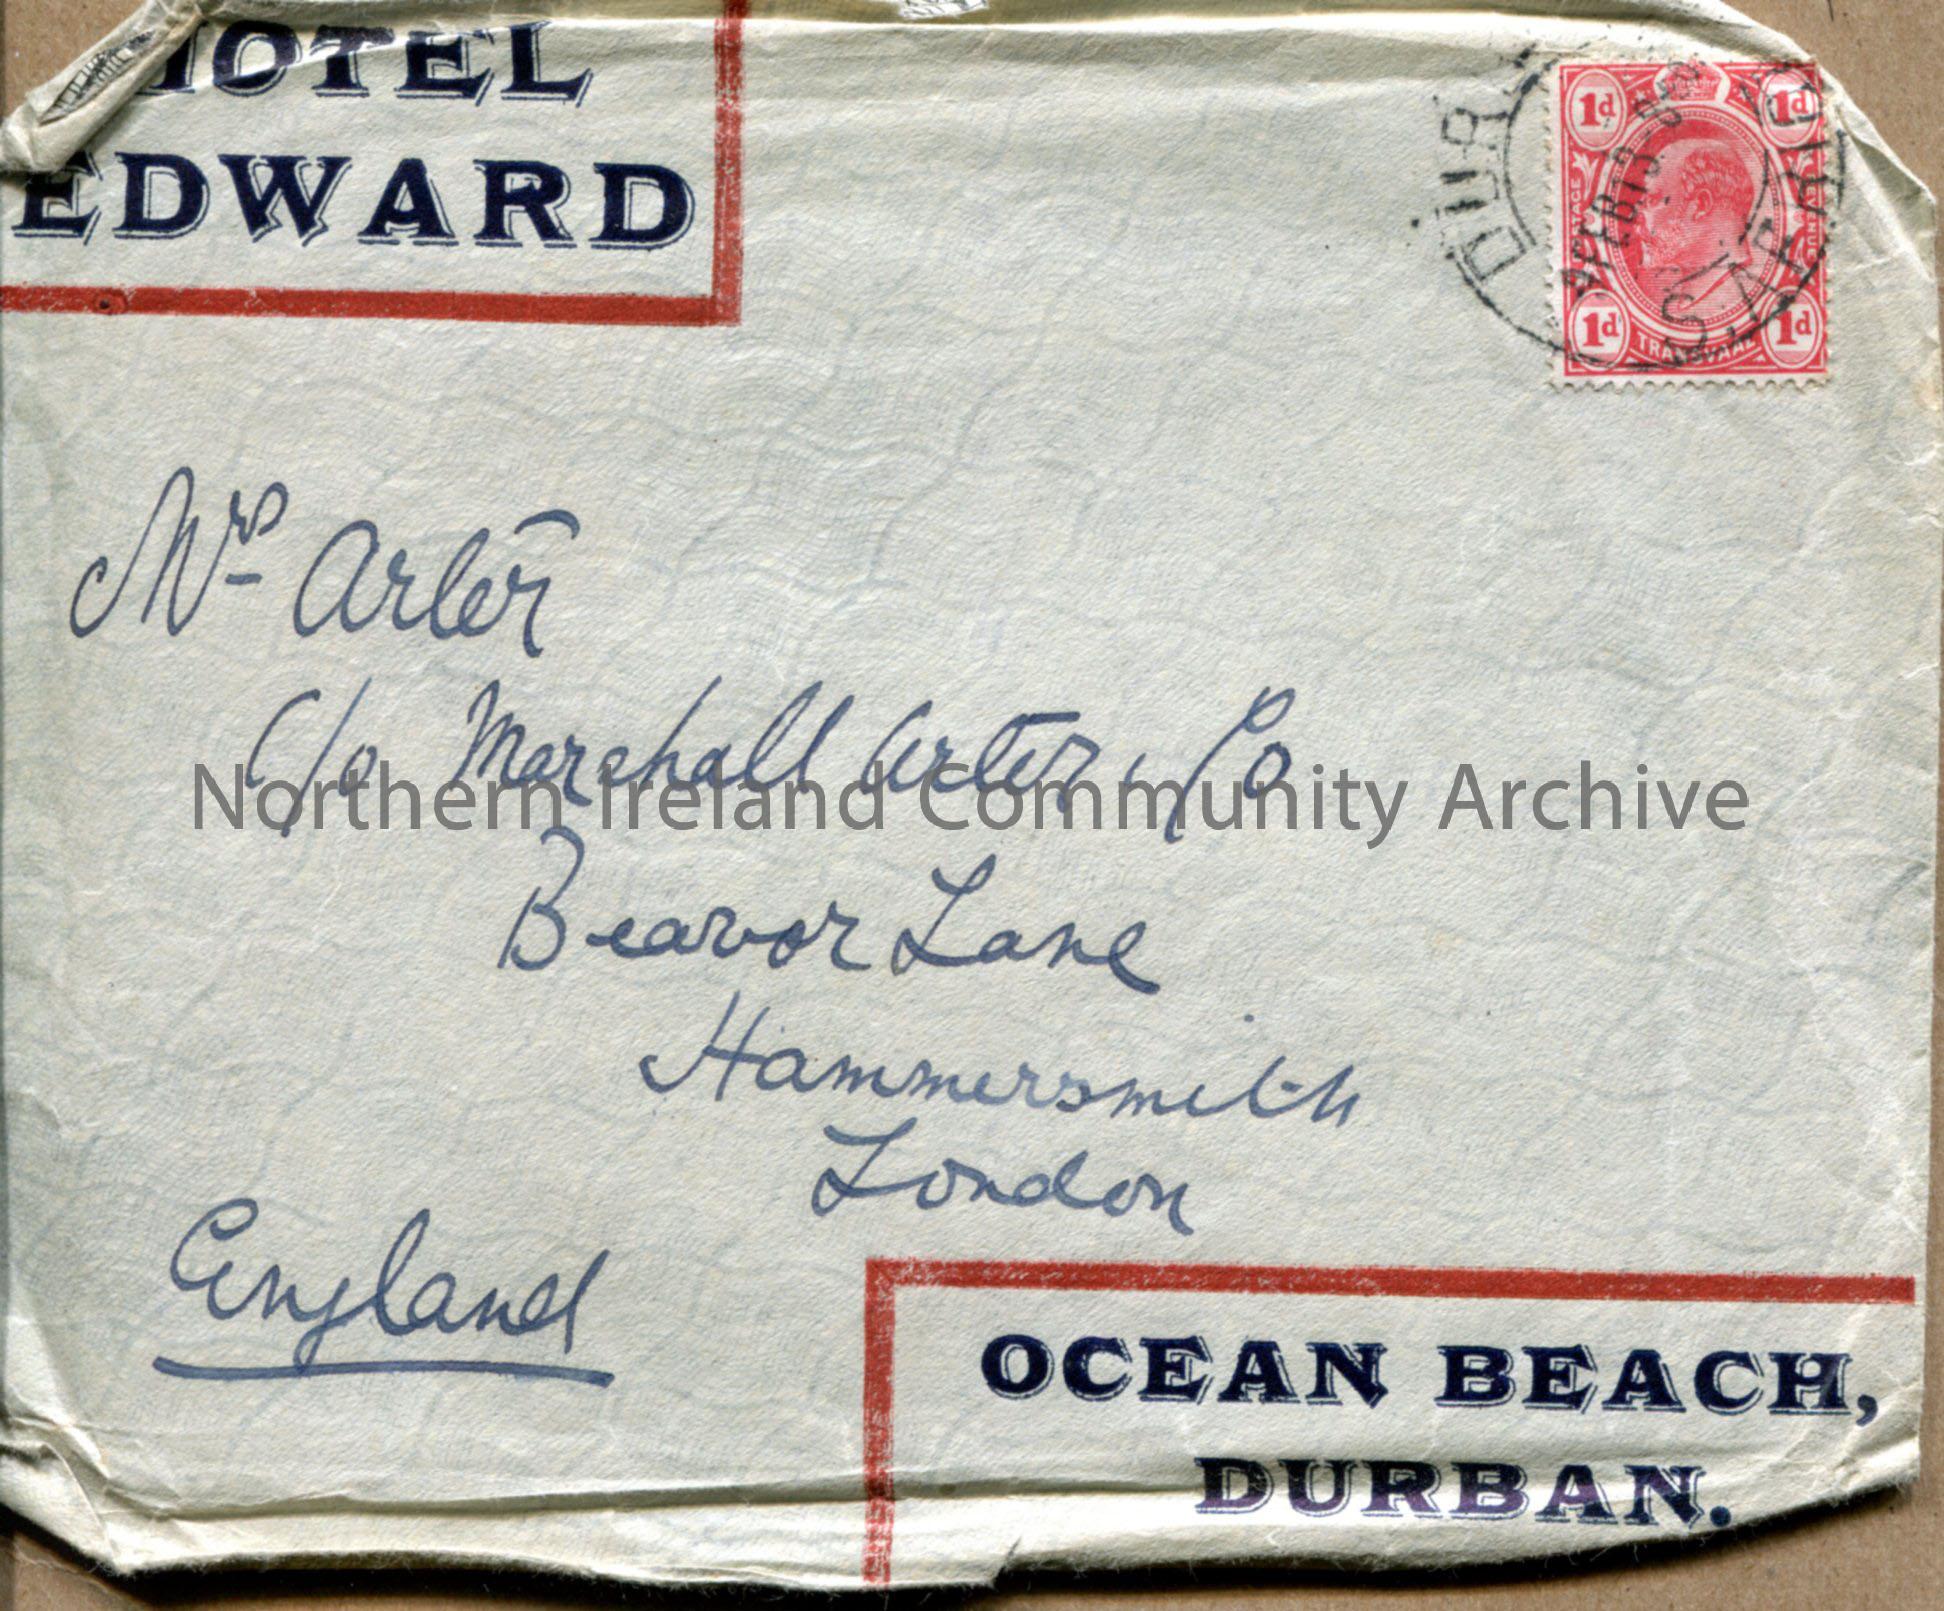 HOTEL
EDWARD
1d 1d
POSTAGE
REVENUE
1d 1d
TRANSVAAL
DURBAN
9 FEB 13
Mrs Arter
c/o Marshall Arter, Co
Beavor Lane
Hammersmith
London
England
Northern Ireland Community Archive
OCEAN BEACH,
DURBAN.